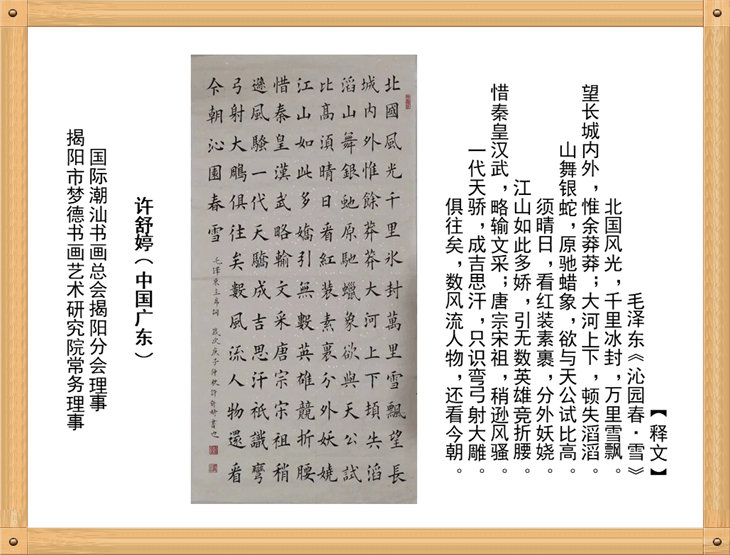 【释文】
毛泽东《沁园春·雪》
北国风光，千里冰封，万里雪飘。
望长城内外，惟余莽莽；大河上下，顿失滔滔。
山舞银蛇，原驰蜡象，欲与天公试比高。
须晴日，看红装素裹，分外妖娆。
江山如此多娇，引无数英雄竞折腰。
惜秦皇汉武，略输文采；唐宗宋祖，稍逊风骚。
一代天骄，成吉思汗，只识弯弓射大雕。
俱往矣，数风流人物，还看今朝。
北國風光千里氷封萬里雪飄望長
城内外惟餘莽莽大河上下頓失滔
滔山舞銀虵原馳蠟象欲與天公試
比高須晴日看紅装素裹分外妖嬈
江山如此多嬌引無數英雄競折腰
惜秦皇漢武略輸文采唐宗宋祖稍
遜風騷一代天驕成吉思汗祇識彎
弓射大鵰俱往矣數風流人物還看
今朝沁園春雪
毛澤東主席詞 歲次庚子仲秋許舒婷書
许舒婷（中国广东）
国际潮汕书画总会揭阳分会理事
揭阳市梦德书画艺术研究院常务理事